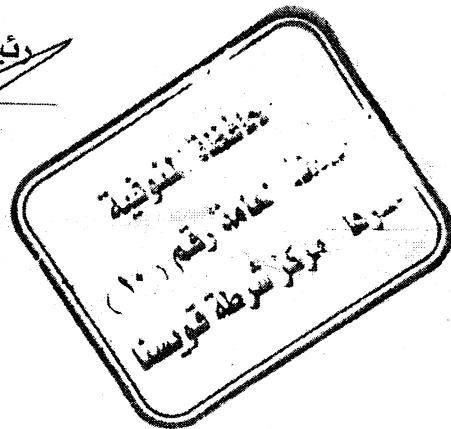 محافظة المنوفية
عامة رقم (١٠)
مركز شرطة قويسنا